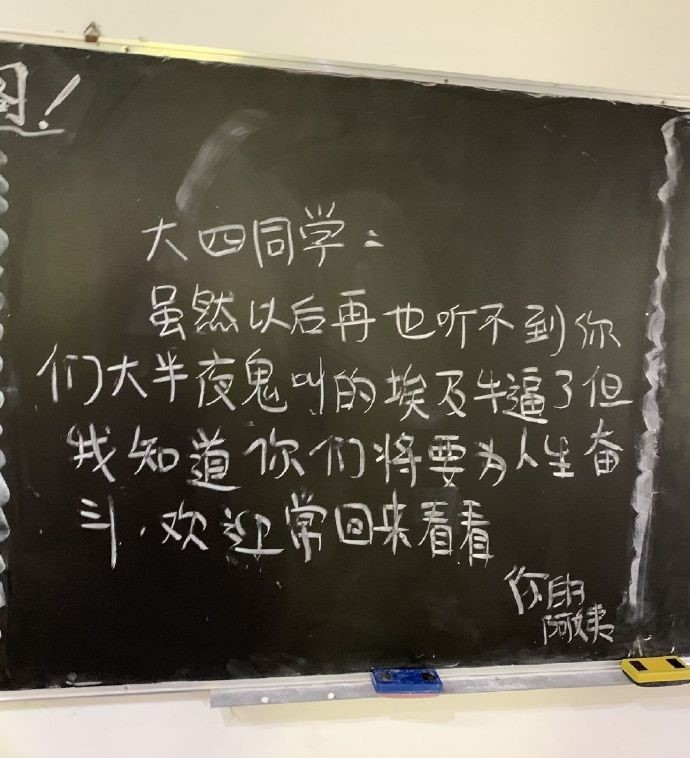 图!
大四同学:
虽然以后再也听不到你
们大半夜鬼叫的埃及牛逼了但
我知道你们将要为人生奋
斗.欢迎常回来看看
你的
阿姨